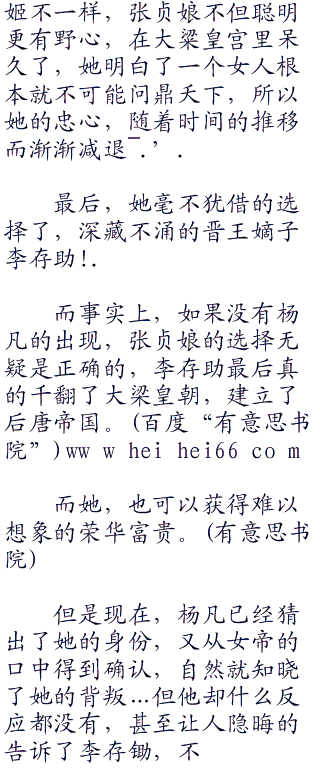 姬不一样，张贞娘不但聪明
更有野心，在大梁皇宫里呆
久了，她明白了一个女人根
本就不可能问鼎天下，所以
她的忠心，随着时间的推移
而渐渐减退‾.’.
最后，她毫不犹借的选
择了，深藏不涌的晋王嫡子
李存助!.
而事实上，如果没有杨
凡的出现，张贞娘的选择无
疑是正确的，李存助最后真
的千翻了大梁皇朝，建立了
后唐帝国。(百度“有意思书
院”)ww w hei hei66 co m
而她，也可以获得难以
想象的荣华富贵。(有意思书
院)
但是现在，杨凡已经猜
出了她的身份，又从女帝的
口中得到确认，自然就知晓
了她的背叛…但他却什么反
应都没有，甚至让人隐晦的
告诉了李存锄，不